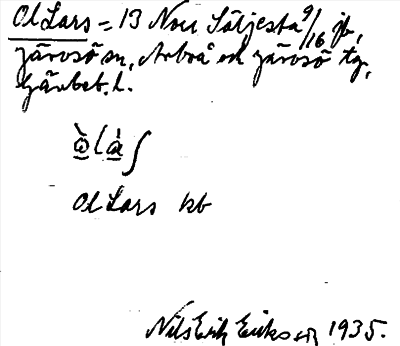 Ol Lars = 13 Norr Säljesta 9/16 jb,
Järvsö sn, Arbrå o Järvsö tg,
Gävleb. l.
Ol Lars kb
Nils Erik Eriksson 1935.